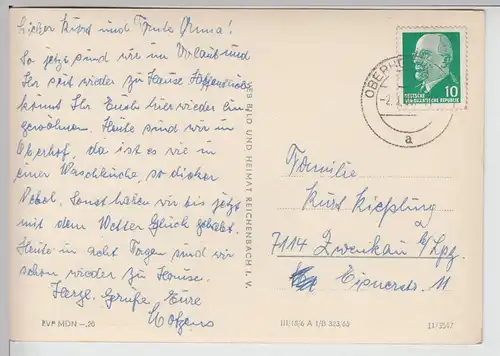 Lieber Kurt und Tante Erna!
So jetzt sind wir im Urlaub und
Ihr seit wieder zu Hause. Hoffentlich
könnt Ihr Euch hier wieder ein
gewöhnen. Heute sind wir in
Oberhof, da ist es wie in
einer Waschküche so dicker
Nebel. Sonst haben wir bis jetzt
mit dem Wetter Glück gehabt.
Heute in acht Tagen sind wir
schon wieder zu Hause.
Herzl. Grüße, Eure
EVP MDN -,20
VEB BILD UND HEIMAT REICHENBACH I. V.
OBERHOF
a
10
DEUTSCHE
DEMOKRATISCHE REPUBLIK
Familie
Kurt Kießling
7114 Zwenkau b/Lpzg.
11
III/18/6 A 1/B 323/65